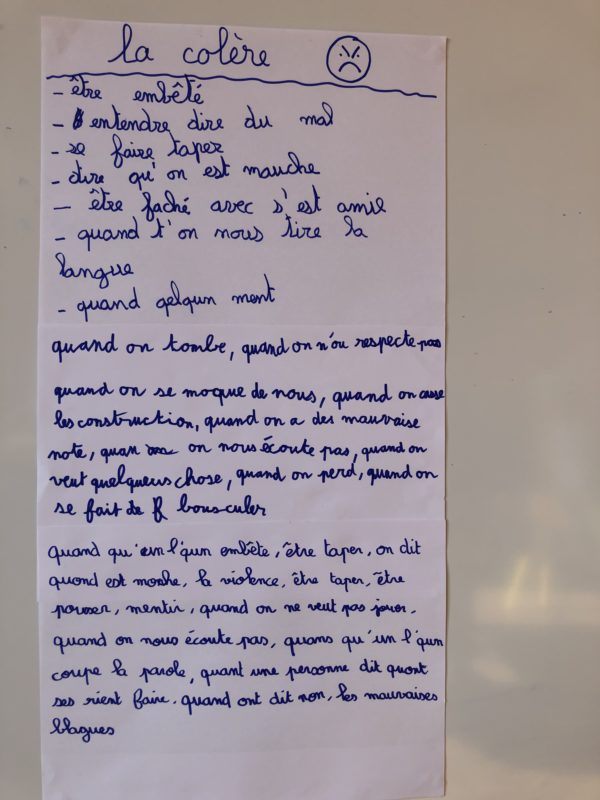 la colère
- être embêté
- entendre dire du mal
- se faire taper
- dire qu'on est mauche
- être faché avec s'est amie
- quand t'on nous tire la
langue
- quand qelqun ment
quand on tombe, quand on n'ou respecte pas
quand on se moque de nous, quand on casse
les construction, quand on a des mauvaise
note, quan on nous écoute pas, quand on
veut quelqueus chose, quand on perd, quand on
se fait de bousculer
quand qu'un l'qun embête, être taper, on dit
quond est moche, la violence, être taper, être
pousser, mentir, quand on ne veut pas jouer.
quand on nous écoute pas, quans qu'un l'qun
coupe la parole, quant une personne dit quont
ses rient faire. quand ont dit non, les mauvaises
blagues